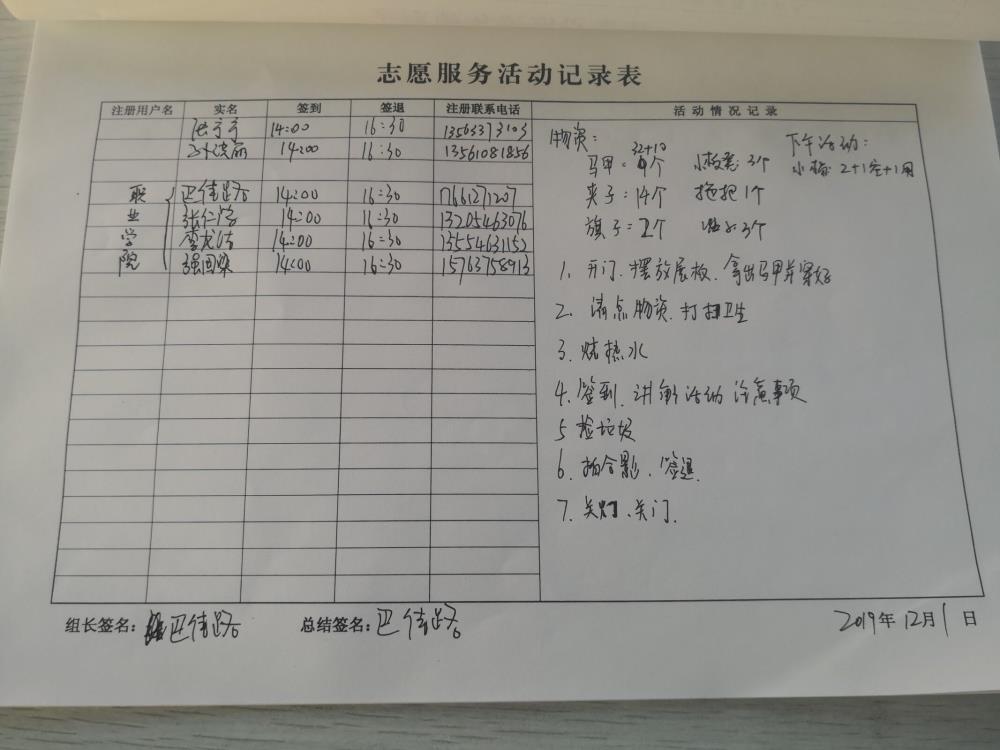 志愿服务活动记录表
注册用户名 实名 签到 签退 注册联系电话 活动情况记录
14:00 16:30 13563373103
14:00 16:30 13561081856
职业学院
巴伟路 14:00 16:30 17661271207
张仁 14:00 16:30 13205463076
李龙 14:00 16:30 13554631152
强国 14:00 16:30 15763758913
物资: 下午活动:
32+10
马甲: 个 小板凳: 3个 小 2+1 +1
夹子: 14个 拖把1个
旗子: 2个 3个
1. 开门、摆放展板、拿出马甲并穿好
2. 清点物资、打扫卫生
3. 烧热水
4. 签到、讲解活动注意事项
5 捡垃圾
6. 拍合影、签退
7. 关灯、关门.
组长签名: 巴伟路 总结签名: 巴伟路 2019年12月1日